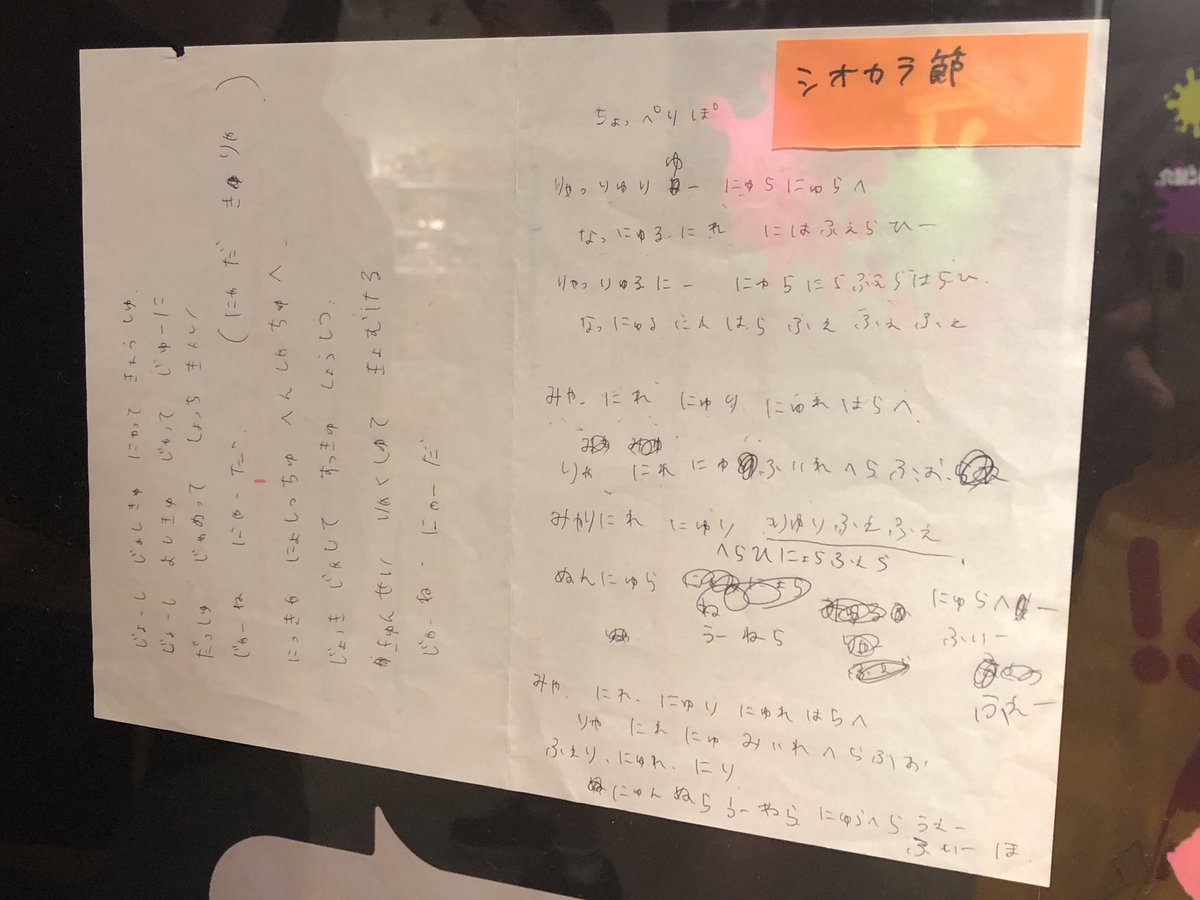 シオカラ節
ちょっぺりぽ
りゅっりゅりゅー にゅらにゅらへ
なっにゅるにれ にはふぇらひー
りゅっりゅるにー にゃらにらふぇらはらひ.
なっにゅるにんはら ふぇ ふぇ ふぇ
みゃ. にれ にゅり にゅれはらへ
りゃ にれ にゅ ふいれへらふぉ.
みがりにれ にゅり りゆりふぇふぇ
へらひにょらふぇら
ぬんにゅら にゅらへー
うーねら ふぃー
みゃ. にれ. にゅり にゅれはらへ
うぇー
りゃ にれにゅ みいれへらふぃお
ふぇり. にゅれ. にり
にゅんぬらうーやら にゅらへらうえー
ふぃーほ
じょーし じゃんきゅ にかって きょうしゅ.
じょーし よしきゅ じかって じゅーに
だっしゅ じゃめって しょっち きんし
じゃーね にゃーだ (にゃだ きゅりゃ)
にっきゃ にょしっちゅ へんしゃちゅへ
じょっき じんして すっきゅ しょうしっ
きゅんせい りゃくしゅて きょむける
じゃーね. にゃーだ